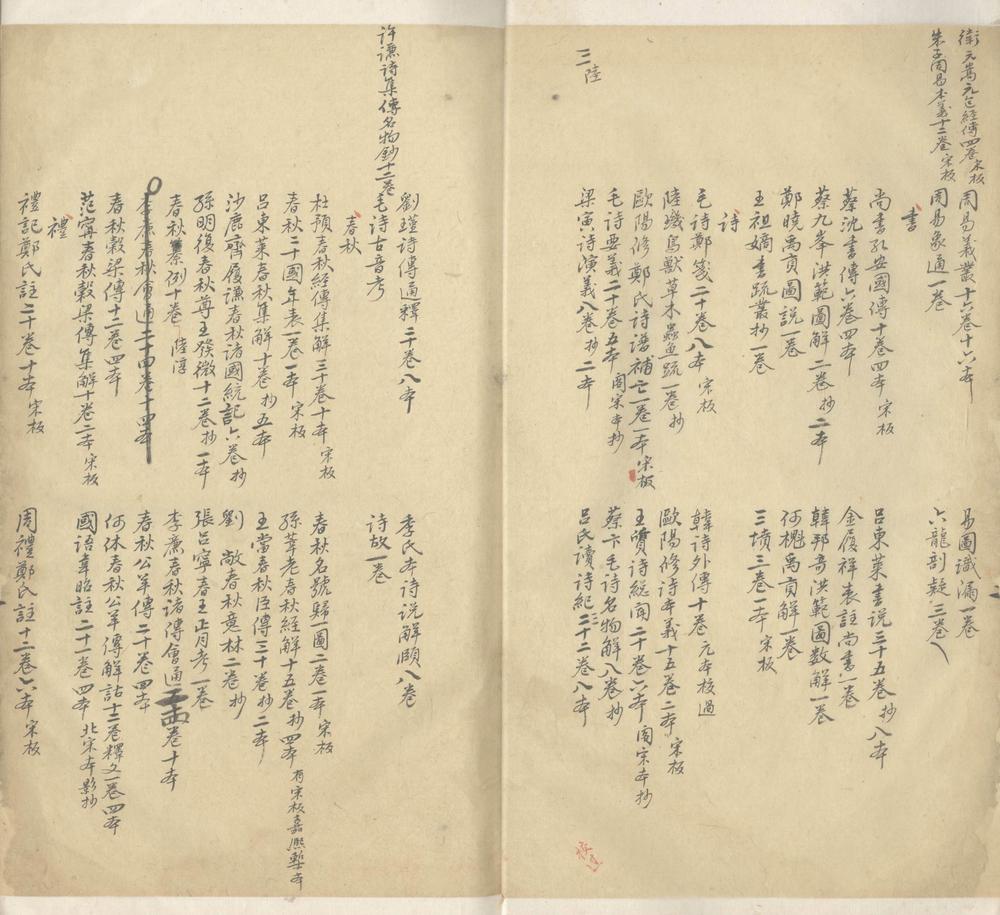 衛元嵩元包經傳四卷宋板
朱子周易本義十二卷宋板
周易義叢十六卷十六本
易圖識漏一卷
周易象通一卷
六龍剖疑三卷
書
尚書孔安國傳十卷四本 宋板
呂東萊書說三十五卷抄八本
蔡沈書傳六卷四本
金履祥表註尚書一卷
蔡九峯洪範圖解二卷抄二本
韓邦奇洪範圖數解一卷
鄭曉禹貢圖說一卷
何櫆禹貢解一卷
王祖嫡書疏叢抄一卷
三墳三卷一本 宋板
詩
毛詩鄭箋二十卷八本 宋板
韓詩外傳十卷 元本校過
陸璣鳥獸草木蟲魚疏一卷抄
歐陽修詩本義十五卷二本 宋板
歐陽修鄭氏詩譜補亡一卷一本宋板
王質詩總聞二十卷六本 閣宋本抄
毛詩要義二十卷五本 閣宋本抄
蔡卞毛詩名物解八卷抄
梁寅詩演義八卷抄二本
呂氏讀詩紀三十二卷八本
三陸
校過
許謙詩集傳名物鈔十二卷
劉瑾詩傳通釋二十卷八本
季氏本詩說解頤八卷
毛詩古音考
詩故一卷
春秋
杜預春秋經傳集解三十卷十本 宋板
春秋名號歸一圖二卷一本 宋板
春秋二十國年表一卷一本 宋板
孫莘老春秋經解十五卷抄四本 有宋板嘉熙槧本
呂東萊春秋集解十卷抄五本
王當春秋臣傳三十卷抄二本
沙鹿齊履謙春秋諸國統記六卷抄
劉敞春秋意林二卷抄
孫明復春秋尊王發微十二卷抄一本
張呂寧春王正月考一卷
春秋纂例十卷 陸淳
李廉春秋諸傳會通二十四卷十本
李廉春秋會通二十四卷十四本
春秋公羊傳二十卷四本
春秋穀梁傳十二卷四本
何休春秋公羊傳解詁十二卷釋文一卷四本
范寧春秋穀梁傳集解十卷二本 宋板
國語韋昭註二十一卷四本 北宋本影抄
禮
禮記鄭氏註二十卷十本 宋板
周禮鄭氏註十二卷六本 宋板